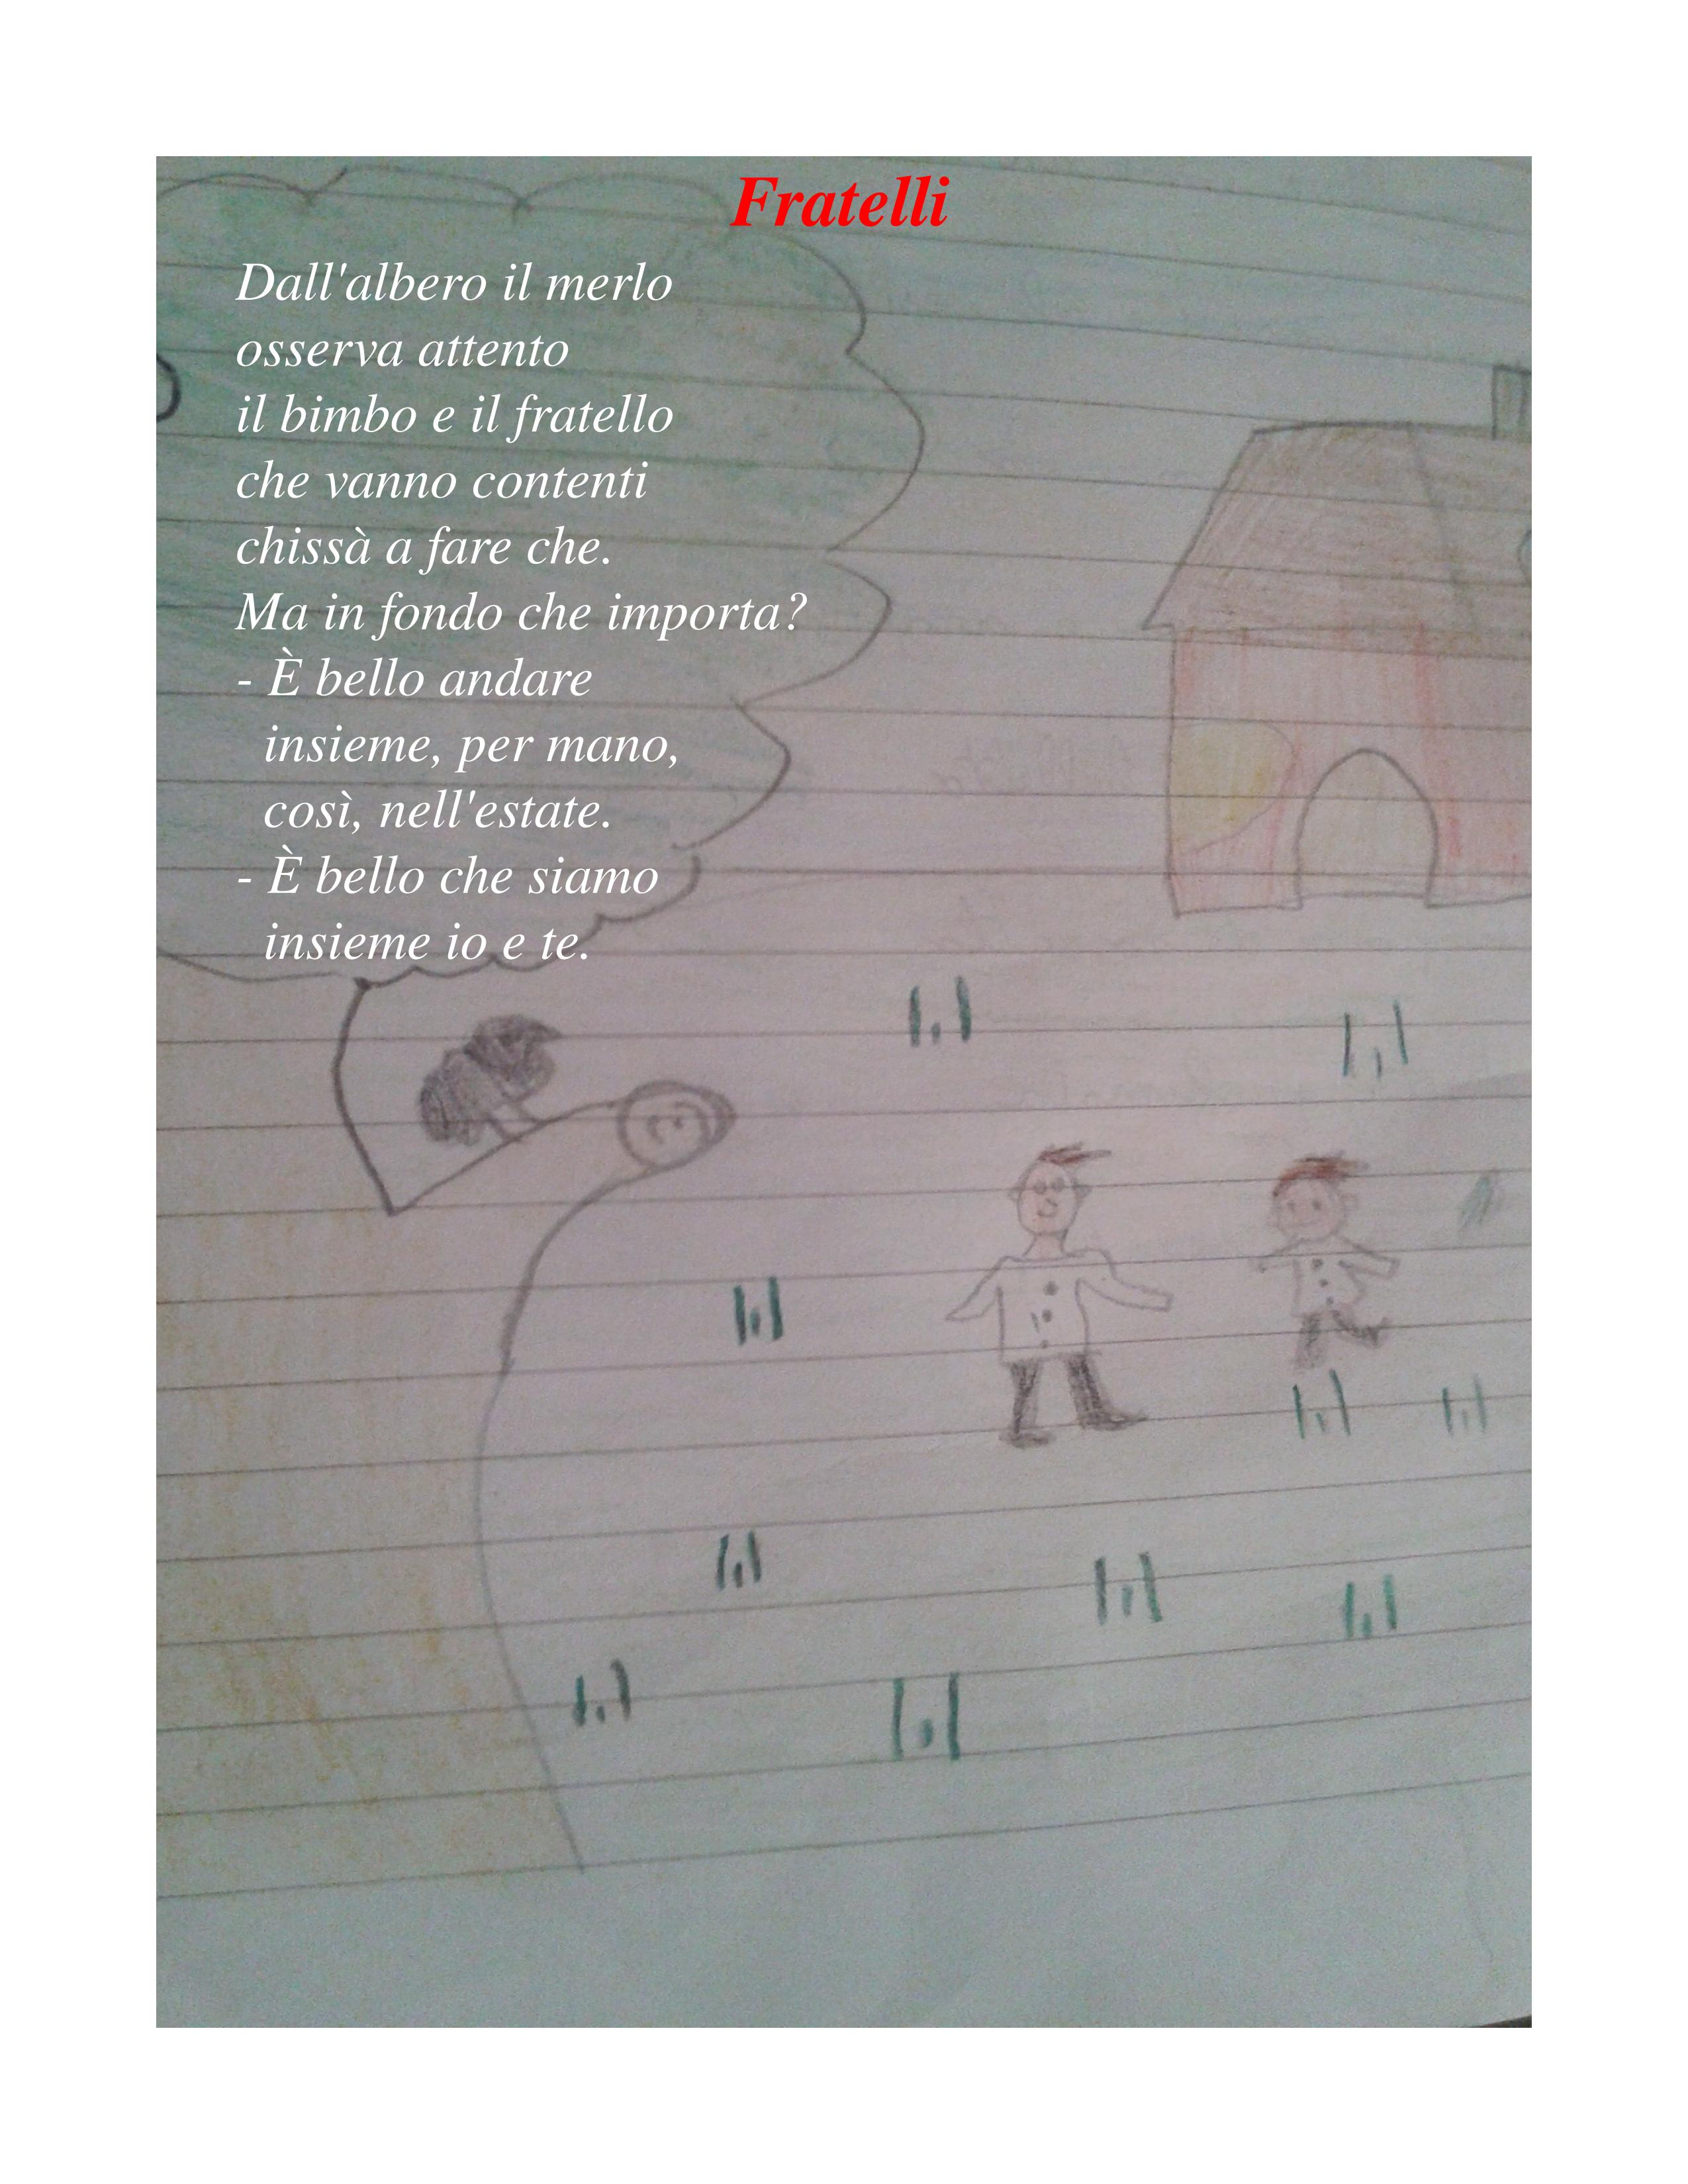 Fratelli
Dall'albero il merlo
osserva attento
il bimbo e il fratello
che vanno contenti
chissà a fare che.
Ma in fondo che importa?
- È bello andare
insieme, per mano,
così, nell'estate.
- È bello che siamo
insieme io e te.